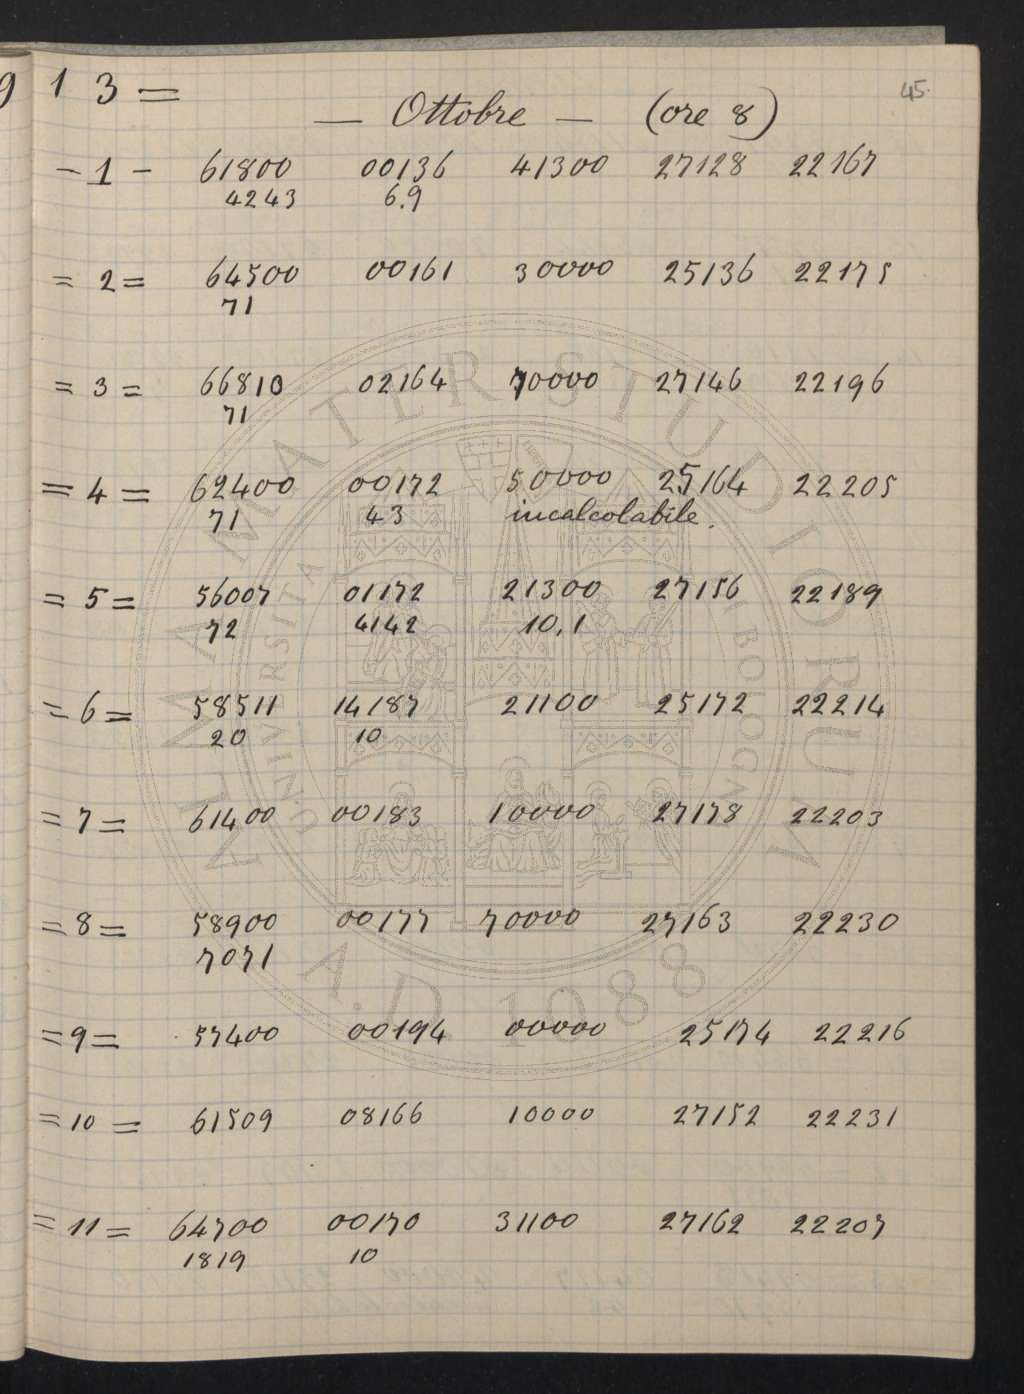 9 1 3 =
45.
— Ottobre — (ore 8)
- 1 - 61800 00136 41300 27128 22167
4243 6.9
= 2 = 64500 00161 30000 25136 22175
71
= 3 = 66810 02164 70000 27146 22196
71
= 4 = 62400 00172 50000 25164 22205
71 43 incalcolabile.
= 5 = 56007 01172 21300 27156 22189
72 4142 10,1
= 6 = 58511 14187 21100 25172 22214
20 10
= 7 = 61400 00183 10000 27178 22203
= 8 = 58900 00177 70000 27163 22230
7071
= 9 = 57400 00194 00000 25174 22216
= 10 = 61509 08166 10000 27152 22231
= 11 = 64700 00170 31100 27162 22207
1819 10
ALMA MATER STUDIORUM
UNIVERSITA DI BOLOGNA
A.D. 1088